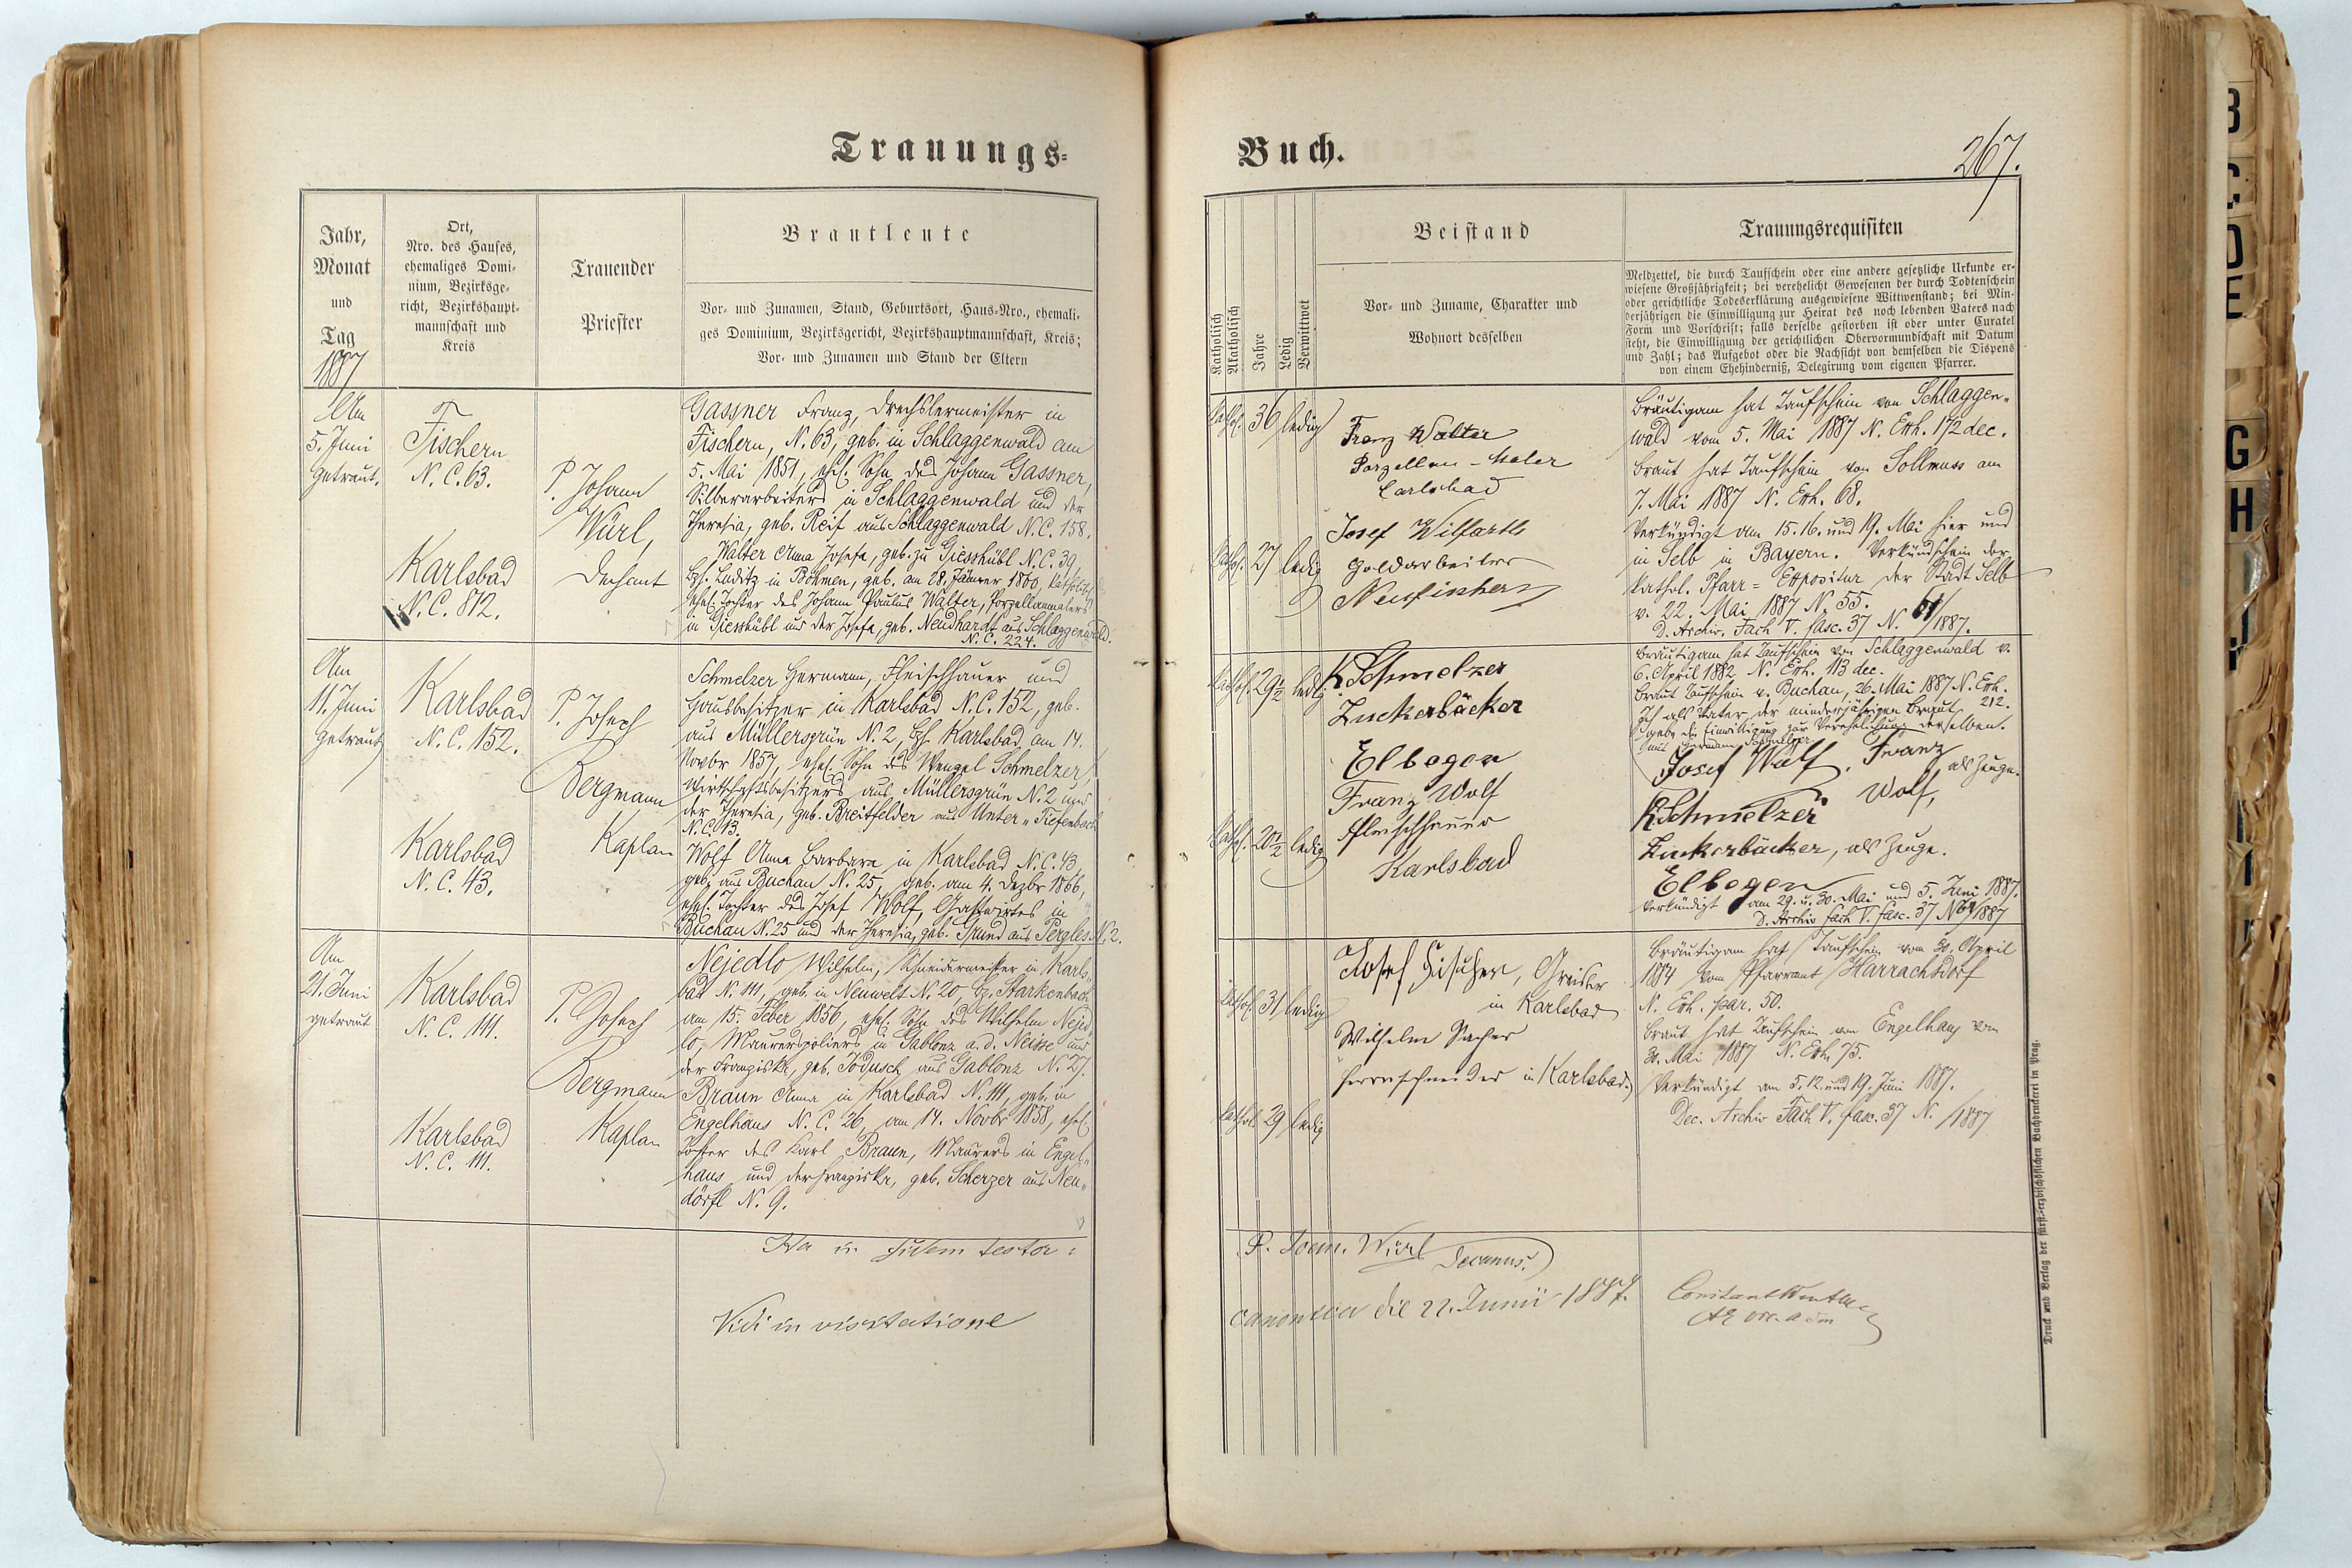 Trauungs=
Jahr,
Monat
und
Tag
1887
Ort,
Nro. des Hauses,
ehemaliges Domi-
nium, Bezirksge-
richt, Bezirkshaupt-
mannschaft und
Kreis
Trauender
Priester
Brautleute
Vor- und Zunamen, Stand, Geburtsort, Haus-Nro., ehemali-
ges Dominium, Bezirksgericht, Bezirkshauptmannschaft, Kreis;
Vor- und Zunamen und Stand der Eltern
Am
5. Juni
getraut.
Fischern
N. C. 63.
Karlsbad
N. C. 812.
P. Johann
Würl,
Dechant
Gassner Franz, Drechslermeister in
Fischern, N. 63, geb. in Schlaggenwald am
5. Mai 1851, ehel. Sohn des Johann Gassner,
Silberarbeiters in Schlaggenwald und der
Theresia, geb. Reif aus Schlaggenwald N. C. 158.
Walter Anna Josefa, geb. zu Giesshübl N. C. 39,
Bzh. Luditz in Böhmen, geb. am 28. Jänner 1860, kathol.
ehel. Tochter des Johann Paulus Walter, Porzellanmalers
in Giesshübl und der Josefa, geb. Neudhardt aus Schlaggenwald.
N. C. 224.
Am
11. Juni
getraut
Karlsbad
N. C. 152.
Karlsbad
N. C. 43.
P. Joseph
Bergmann
Kaplan
Schmelzer Hermann, Fleischhauer und
Hausbesitzer in Karlsbad N. C. 152, geb.
aus Müllersgrün N. 2, Bzh. Karlsbad, am 14.
Novbr 1857, ehel. Sohn des Wenzel Schmelzer,
Wirtschaftsbesitzers aus Müllersgrün N. 2 und
der Theresia, geb. Breitfelder aus Unter„Tiefenbach
N. C. 13.
Wolf Anna Barbara in Karlsbad N. C. 43,
geb. aus Buchau N. 25, geb. am 4. Dezbr 1866,
ehel. Tochter des Josef Wolf, Gastwirtes in
Buchau N. 25 und der Theresia, geb. Grund aus Pergles N. 2.
Am
21. Juni
getraut
Karlsbad
N. C. 111.
Karlsbad
N. C. 111.
P. Joseph
Bergmann
Kaplan
Nejedlo Wilhelm, Schneidermeister in Karls„
bad N. 111, geb. in Neuwelt N. 20, Bz. Starkenbach
am 15. Feber 1856, ehel. Sohn des Wilhelm Nejed
lo, Maurerpoliers in Gablonz a. d. Neisse und
der Franziska, geb. Jodusch aus Gablonz N. 27.
Braun Anna in Karlsbad N. 111, geb. in
Engelhaus N. C. 26, am 14. Novbr 1858, ehel.
Tochter des Karl Braun, Maurers in Engel„
haus und der Franziska, geb. Scherzer aus Neu„
dörfl N. 9.
Ita in fidem testor:
Vidi in visitatione
Buch.
267.
Katholisch
Akatholisch
Jahre
Ledig
Verwittwet
Beistand
Vor- und Zuname, Charakter und
Wohnort desselben
Trauungsrequisiten
Meldzettel, die durch Taufschein oder eine andere gesetzliche Urkunde er-
wiesene Großjährigkeit; bei verehelicht Gewesenen der durch Todtenschein
oder gerichtliche Todeserklärung ausgewiesene Wittwenstand; bei Min-
derjährigen die Einwilligung zur Heirat des noch lebenden Vaters nach
Form und Vorschrift; falls derselbe gestorben ist oder unter Curatel
steht, die Einwilligung der gerichtlichen Obervormundschaft mit Datum
und Zahl; das Aufgebot oder die Nachsicht von demselben die Dispens
von einem Ehehinderniß, Delegirung vom eigenen Pfarrer.
Kathol. 36 ledig
Kathol. 27 ledig
Franz Walter
Porzellan-Maler
Carlsbad
Josef Wilfarth
Goldarbeiter
Neufischern
Bräutigam hat Taufschein von Schlaggen„
wald vom 5. Mai 1887 N. Exh. 172 dec.
Braut hat Taufschein von Sollmuss am
7. Mai 1887 N. Exh. 68.
Verkündigt am 15. 16. und 19. Mai hier und
in Selb in Bayern. Verkündschein der
kathol. Pfarr= Expositur der Stadt Selb
v. 22. Mai 1887 N. 55.
D. Archiv. Fach V. fasc. 37 N. 61/1887.
Kathol. 29½ ledig
Kathol. 20½ ledig
K Schmelzer
Zuckerbäcker
Elbogen
Franz Wolf
Fleischhauer
Karlsbad
Bräutigam hat Taufschein von Schlaggenwald v.
6. April 1882 N. Exh. 113 dec.
Braut Taufschein v. Buchau, 26. Mai 1887 N. Exh.
212.
Ich als Vater der minderjährigen Braut
gebe die Einwilligung zur Verehelichung derselben
mit Hermann Schmelzer
Josef Wolf. Franz
Wolf, als Zeuge.
K Schmelzer
Zuckerbäcker, als Zeuge.
Elbogen
Verkündigt am 29. u. 30. Mai und 5. Juni 1887.
D. Archiv Fach V. fasc. 37 N. 62/1887
Kathol. 31 ledig
Kathol. 29 ledig
Josef Fischer, Greisler
in Karlsbad
Wilhelm Pacher
Herrnschneider in Karlsbad.
Bräutigam hat Taufschein vom 30. April
1884 vom Pfarramt Harrachsdorf
N. Exh. par. 50.
Braut hat Taufschein von Engelhaus vom
30. Mai 1887 N. Exh. 75.
Verkündigt am 5. 12. und 19. Juni 1887.
Dec. Archiv Fach V. fasc. 37 N. /1887
P. Joan. Würl
Decanus.
canonica die 22. Junii 1887.
Druck und Verlag der fürst-erzbischöflichen Buchdruckerei in Prag.
B
C
D
E
G
H